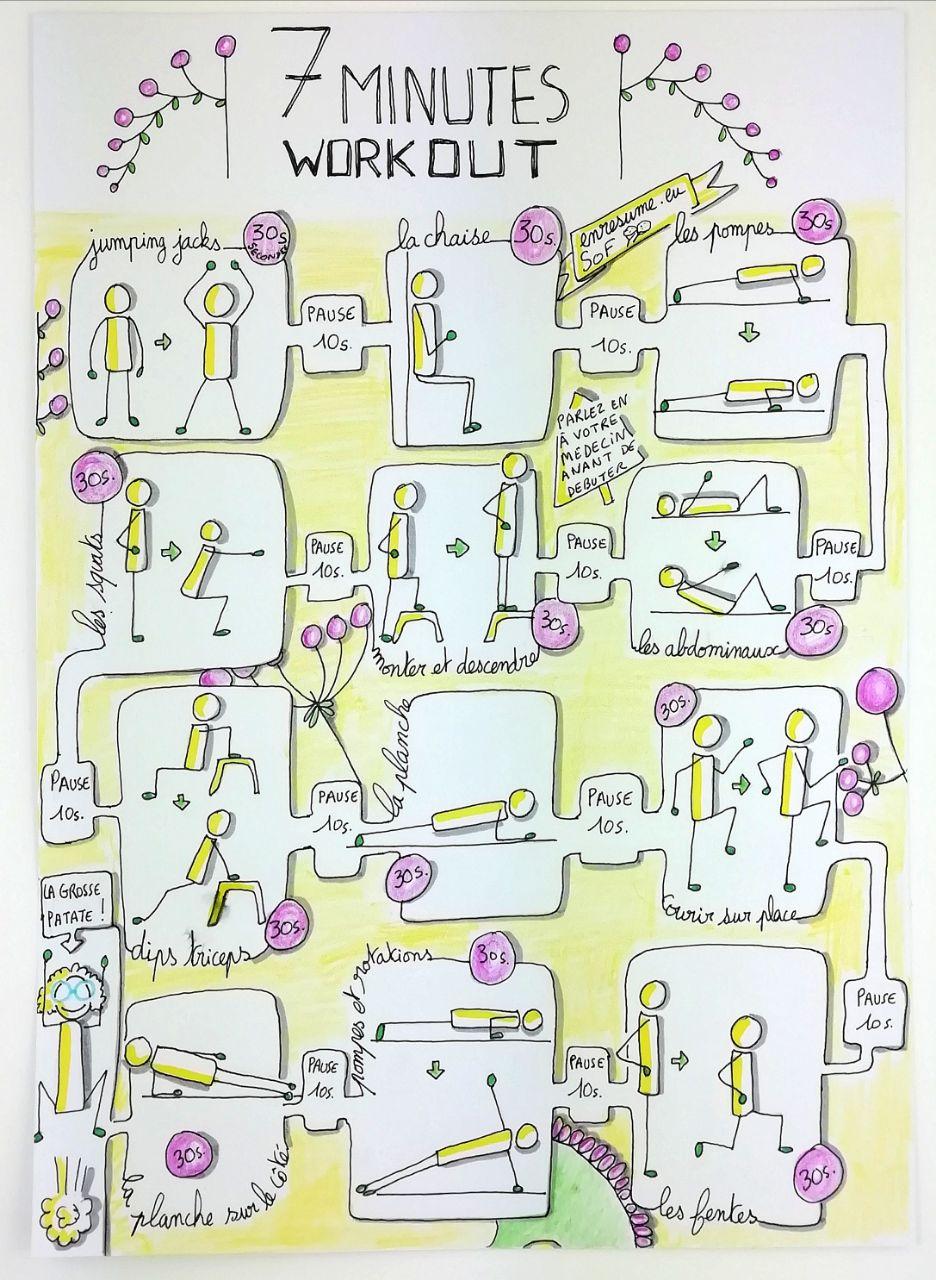 7 MINUTES
WORKOUT
jumping jacks
30s.
SECONDES
PAUSE
10s.
la chaise
30s.
PAUSE
10s.
enresume.eu
SOF
les pompes
30s
PARLEZ EN
À VOTRE
MEDECIN
AVANT DE
DEBUTER
PAUSE
10s.
les abdominaux
30s
PAUSE
10s.
monter et descendre
30s.
PAUSE
10s.
les squats
30s.
PAUSE
10s.
dips triceps
30s.
PAUSE
10s.
la planche
30s.
PAUSE
10s.
Courir sur place
30s.
PAUSE
10s.
les fentes
30s.
PAUSE
10s.
pompes et rotations
30s.
PAUSE
10s.
la planche sur le côté
30s.
LA GROSSE
PATATE !